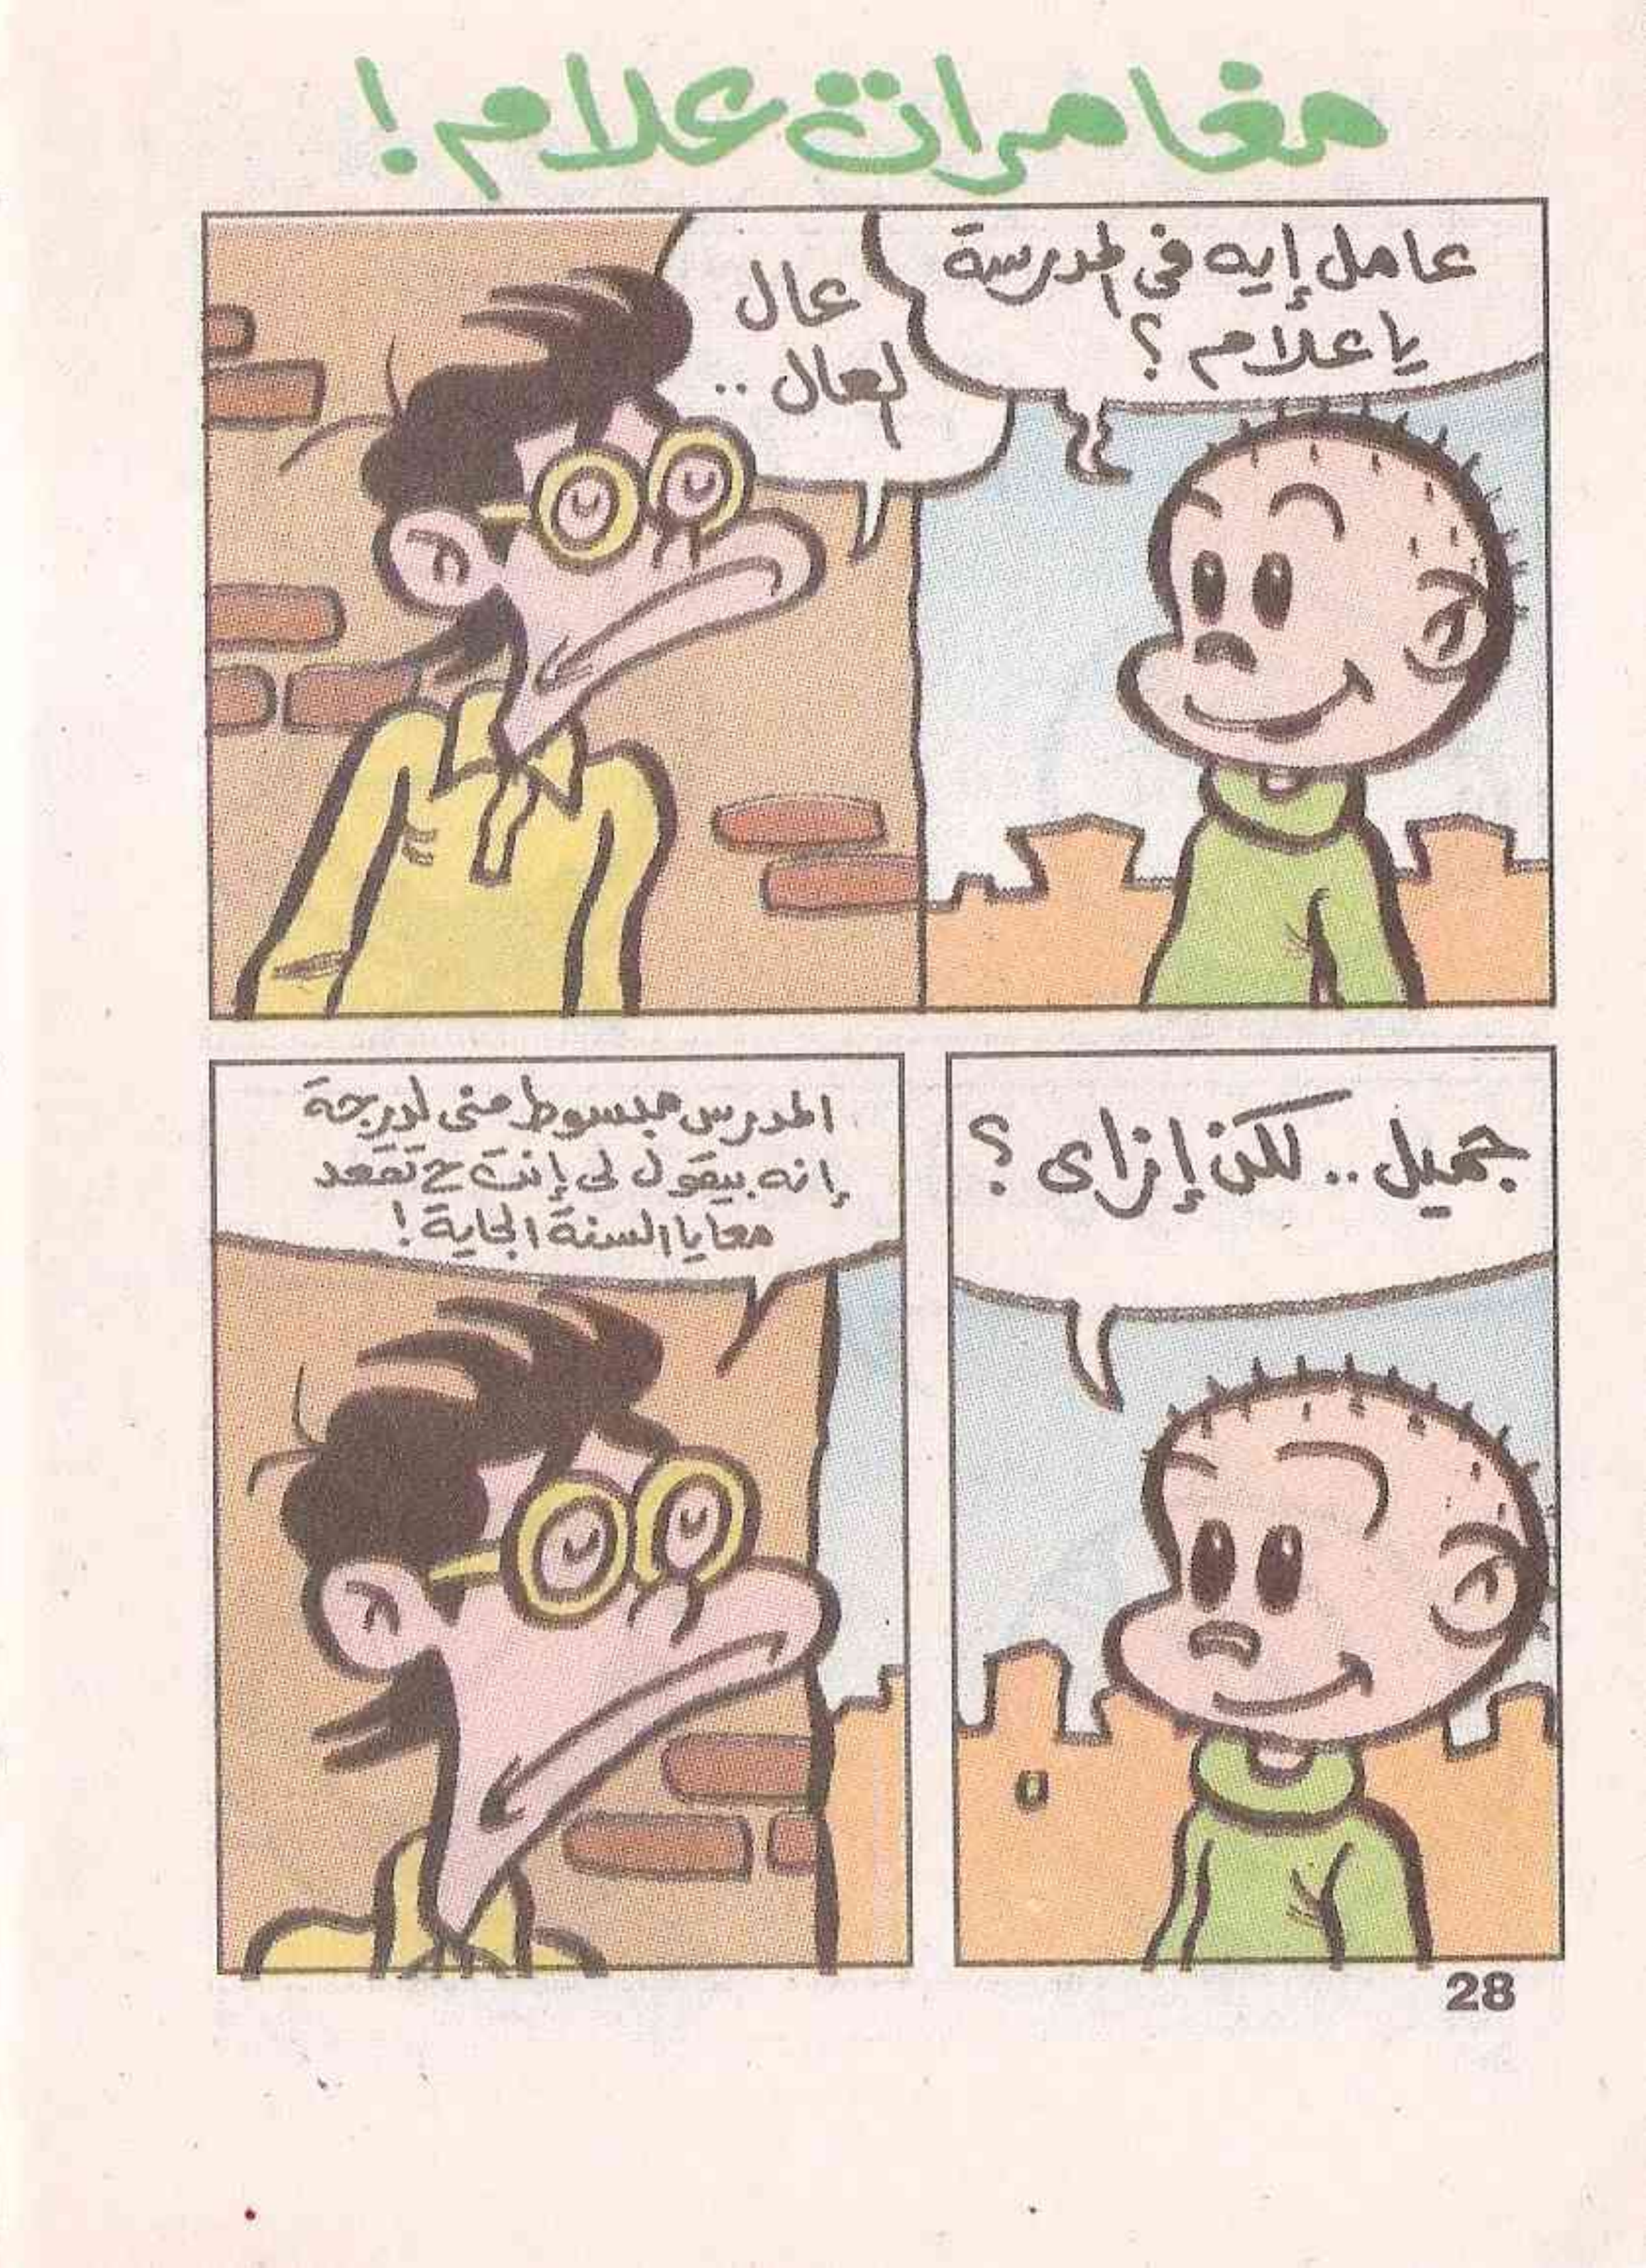 مغامرات علام!
عامل إيه فى المدرسة
يا علام؟
عال
العال..
جميل.. لكن إزاى؟
المدرس مبسوط منى لدرجة
إنه بيقول لى إنت ح تقعد
معايا السنة الجاية!
28